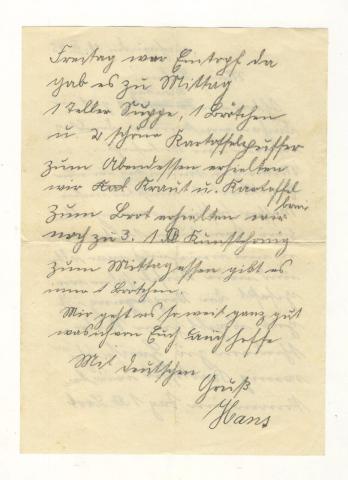 Freitag war Eintopf da
gab es zu Mittag
1 Teller Suppe, 1 Brötchen
u. 2 schöne Kartoffelpuffer
zum Abendessen erhielten
wir Kraut u. Kartoffel
brei
zum Brot erhielten wir
noch zu 3. 1 ℔ Kunsthonig
zum Mittagessen gibt es
immer 1 Brötchen.
Mir geht es so weit ganz gut
was ich von Euch auch hoffe
Mit deutschen
Gruß
Hans